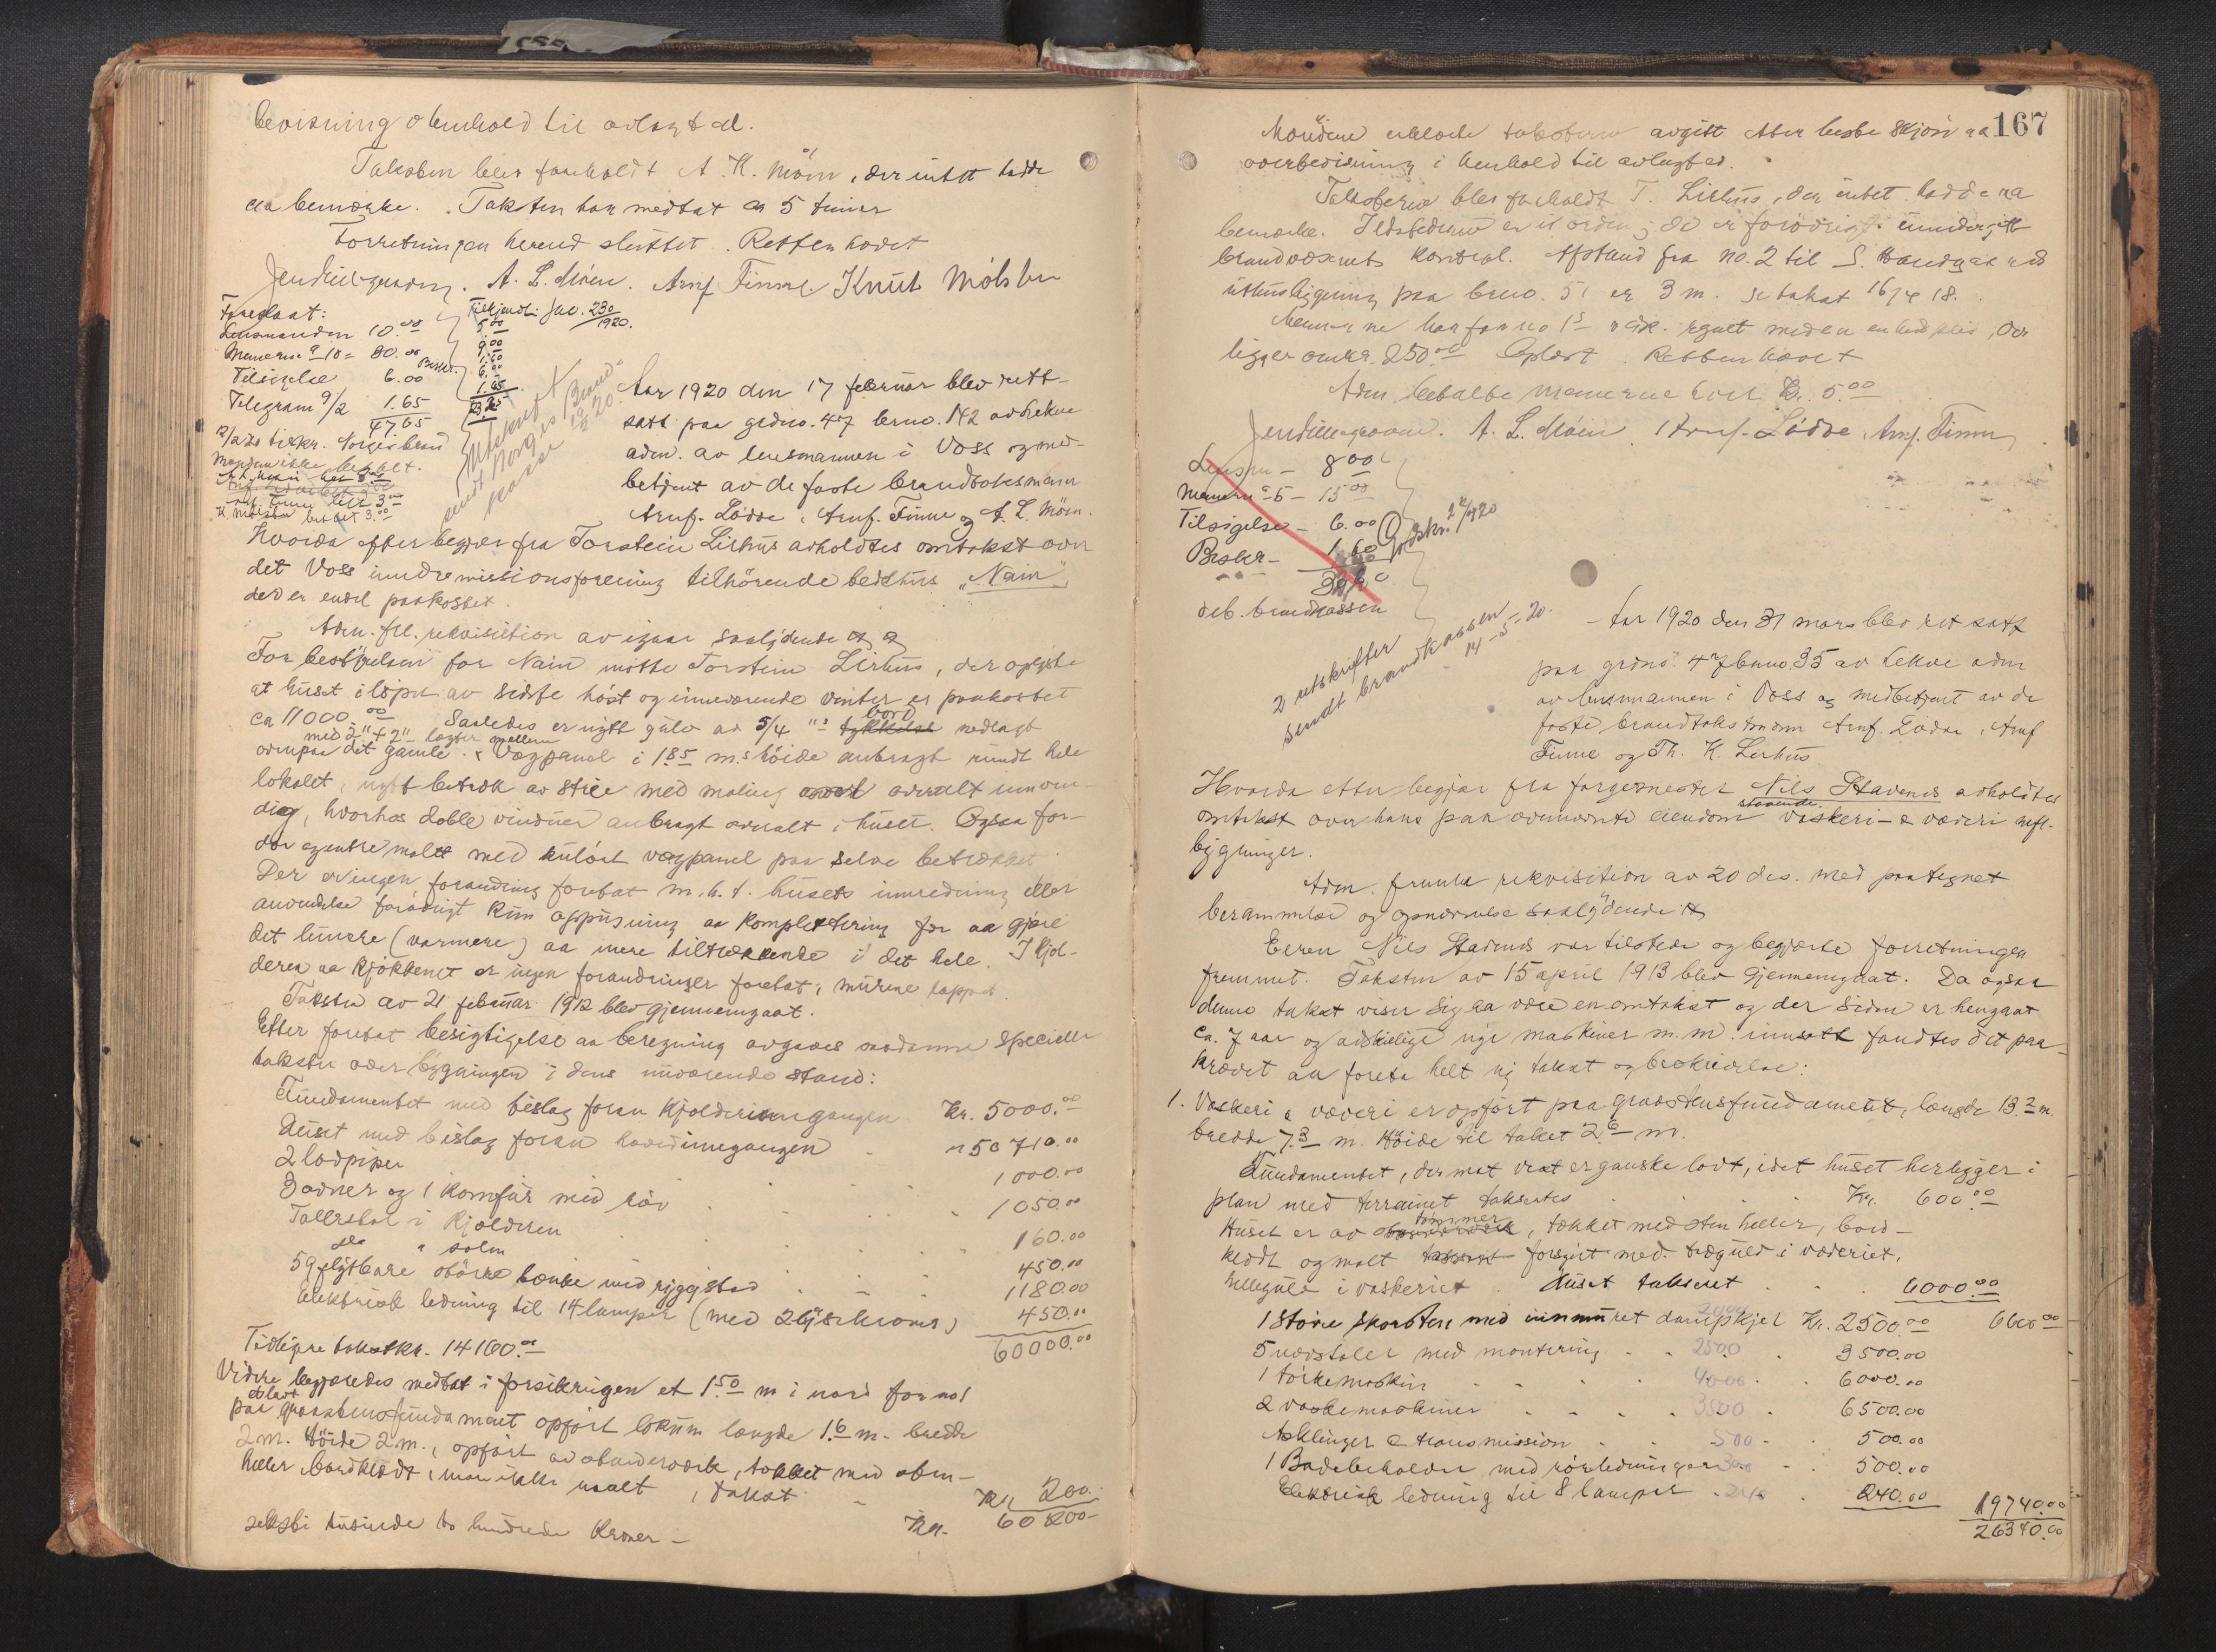 bevisning i henhold til avlagt ed.
Taksten blev foreholdt A. K. Möen, der intet hadde
aa bemærke. Taksten har medtat ca 5 timer
Forretningen hermed sluttet. Retten hævet
A. L. Möen. Arnf Finne Knut Mølster
Foreslaat:
Lensmanden 10.00
Mænnene a 10 = 30.00
Tilsigelse 6.00
Telegram 9/2 1.65
47,65
Tilkjendt: jno. 230/1920.
5.00
9.00
1.60
6.00
1.65
Utskrift
sendt Norges Brand-
kasse
Aar 1920 den 17 februar blev rett
satt paa grdno. 47 brno. 142 av Lekve
adm. av lensmannen i Voss og med-
betjent av de faste brandtakstmænn
Arnf. Lödve, Arnf. Finne og A. L. Möen.
Hvorda efter begjær fra Torstein Lirhus avholdtes omtakst over
det Voss indremissionsforening tilhörende bedehus "Nain",
der er endel paakostet.
Adm. frl. rekvisition av igaar saalydende
For bestyrelsen for Nain mötte Torstein Lirhus, der oplyste
at huset i löpet av sidste höst og inneværende vinter er paakostet
ca 11000.00 Saaledes er nytt gulv av 5/4 "s tykkelse bord nedlagt
med 2" x 2" lægter mellem
ovenpaa det gamle. Vægpanel i 1.85 m.s höide anbragt rundt hele
lokalet, nytt betræk av strie med maling overalt innven-
dig, hvorhos doble vinduer anbragt overalt i huset. Ogsaa for-
dör og entre malt med kulört vægpanel paa selve betrækket.
Der er ingen forandring foretat m.h.t. husets innredning eller
anvendelse forövrigt kun oppusning aa komplettering for aa gjöre
det lunere (varmere) aa mere tiltrækkende i det hele. I kjel-
deren aa kjökkenet er ingen forandringer foretat, murene rappet.
Taksten av 21 februar 1912 blev gjennemgaat.
Efter foretat besigtigelse aa beregning avgaves saadanne specielle
takster over bygningen i dens nuværende stand:
Fundamentet med bislag foran kjelderinngangen Kr. 5000.00
Huset med bislag foran hovedinngangen " 50710.00
2 lodpiper 1000.00
3 ovner og 1 komfur med rör 1050.00
Tallerstol i Kjelderen 160.00
do " salen 450.00
59 flytbare större bænke med ryggstöd 1180.00
Elektrisk ledning til 14 lamper (med 2 lyskroner) 450.00
60000.00
Tidligere takst kr. 14100.00
Videre begjæredes medtat i forsikringen et 1.50 m i nord for no 1
paa graastensfundament opfört lokum længde 1.6 m. bredde
2 m. Höide 2 m., opfört av stenderværk, tækket med sten-
heller, bordklædt, men ikke malt, takst Kr. 200.
Kr. 60200-
seksti tusinde to hundrede Kroner -
167
Mændene erklærte taksterne avgitt efter beste skjön aa
overbevisning i henhold til avlagt ed.
Taksterne blev foreholdt T. Lirhus, der intet hadde aa
bemærke. Ildstederne er i orden, de er forövrigt undergitt
brandvæsenets kontrol. Afstand fra no. 2 til S.
uthusbygning paa brno. 51 er 3 m.
ligger omkr. 250.00 Oplæst. Retten hævet
Adm. betalte mænnene hver Kr. 5.00
A. L. Möen. Arnf. Lödve, Arnf. Finne
Lensm - 8.00
Mænnene a 5 - 15.00
Tilsigelse - 6.00
Beskr - 1.60
deb. brandkassen
Godskr. 24/4 20
2 utskrifter
sendt brandkassen
14-5-20.
Aar 1920 den 31 mars blev ret satt
paa grdno. 47 brno 35 av Lekve adm
av lensmannen i Voss og medbetjent av de
faste brandtakstmænn Arnf. Lödve, Arnf
Finne og Th. K. Lirhus
Hvorda etter begjær fra fargermester Nils Stavenes avholdtes
omtakst over hans paa ovennævnte eiendom staaende vaskeri- & væveri m fl.
bygninger.
Adm. fremla rekvisition av 20 des. med paategnet
berammelse og opnævnelse saalydende
Eieren Nils Stavenes var tilstede og begjærte forretningen
fremmet. Taksten av 15 april 1913 blev gjennemgaat. Da ogsaa
denne takst viser sig aa være en omtakst og der siden er hengaat
ca. 7 aar og adskielige nye maskiner m.m. innsatt fandtes det paa-
krævet aa foreta helt ny takst og beskrivelse:
1. Vaskeri & væveri er opfört paa graastensfundament, længde 13.2 m.
bredde 7.3 m. Höide til taket 2.6 m.
Fundamentet, der mot vest er ganske lavt, idet huset her ligger i
plan med terrainet takseres Kr. 600.00
Huset er av tømmer, tækket med stenheller, bord-
klædt og malt forsynt med trægulv i væveriet,
hellegulv i vaskeriet. Huset takseret 6000.00
6600.00
1 större skorsten med innmuret dampkjel Kr. 2000 2500.00
5 vævstoler med montering 2500 3500.00
1 törkemaskin 4000 6000.00
2 vaskemaskiner 3500 6500.00
Akslinger & transmission 500 500.00
1 Badebeholder med rörledninger 300 500.00
Elektrisk ledning til 8 lamper 240 240.00
19740.00
26340.00